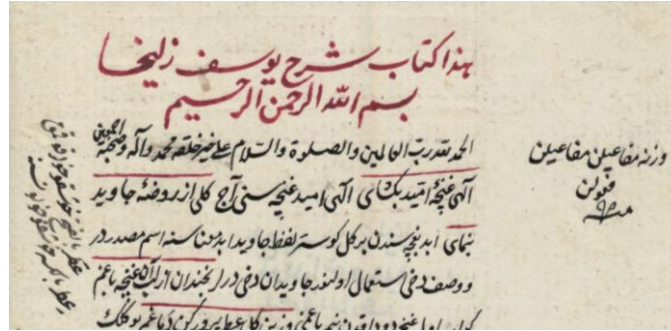 هذا كتاب شرح يوسف زليخا
بسم الله الرحمن الرحيم
الحمد لله رب العالمين والصلوة والسلام على خير خلقه محمد وآله وصحبه اجمعين
الهى غنچۀ اميد بكشاى الهى اميد غنچه سنى آچ كلى از روضۀ جاويد
بنماى ابد بغچه سندن بر كل كوستر لفظ جاويد ابد معناسنه اسم مصدر در
و وصف دخى استعمال اولنور جاويدان دخى ديرلر بخندان از لب آن غنچه باغم
اول غنچه دوداقندن بنم باغمى وزين كل عطر پرور كن دماغم بو كلك
وزنه مفاعيلن مفاعيلن
فعولن